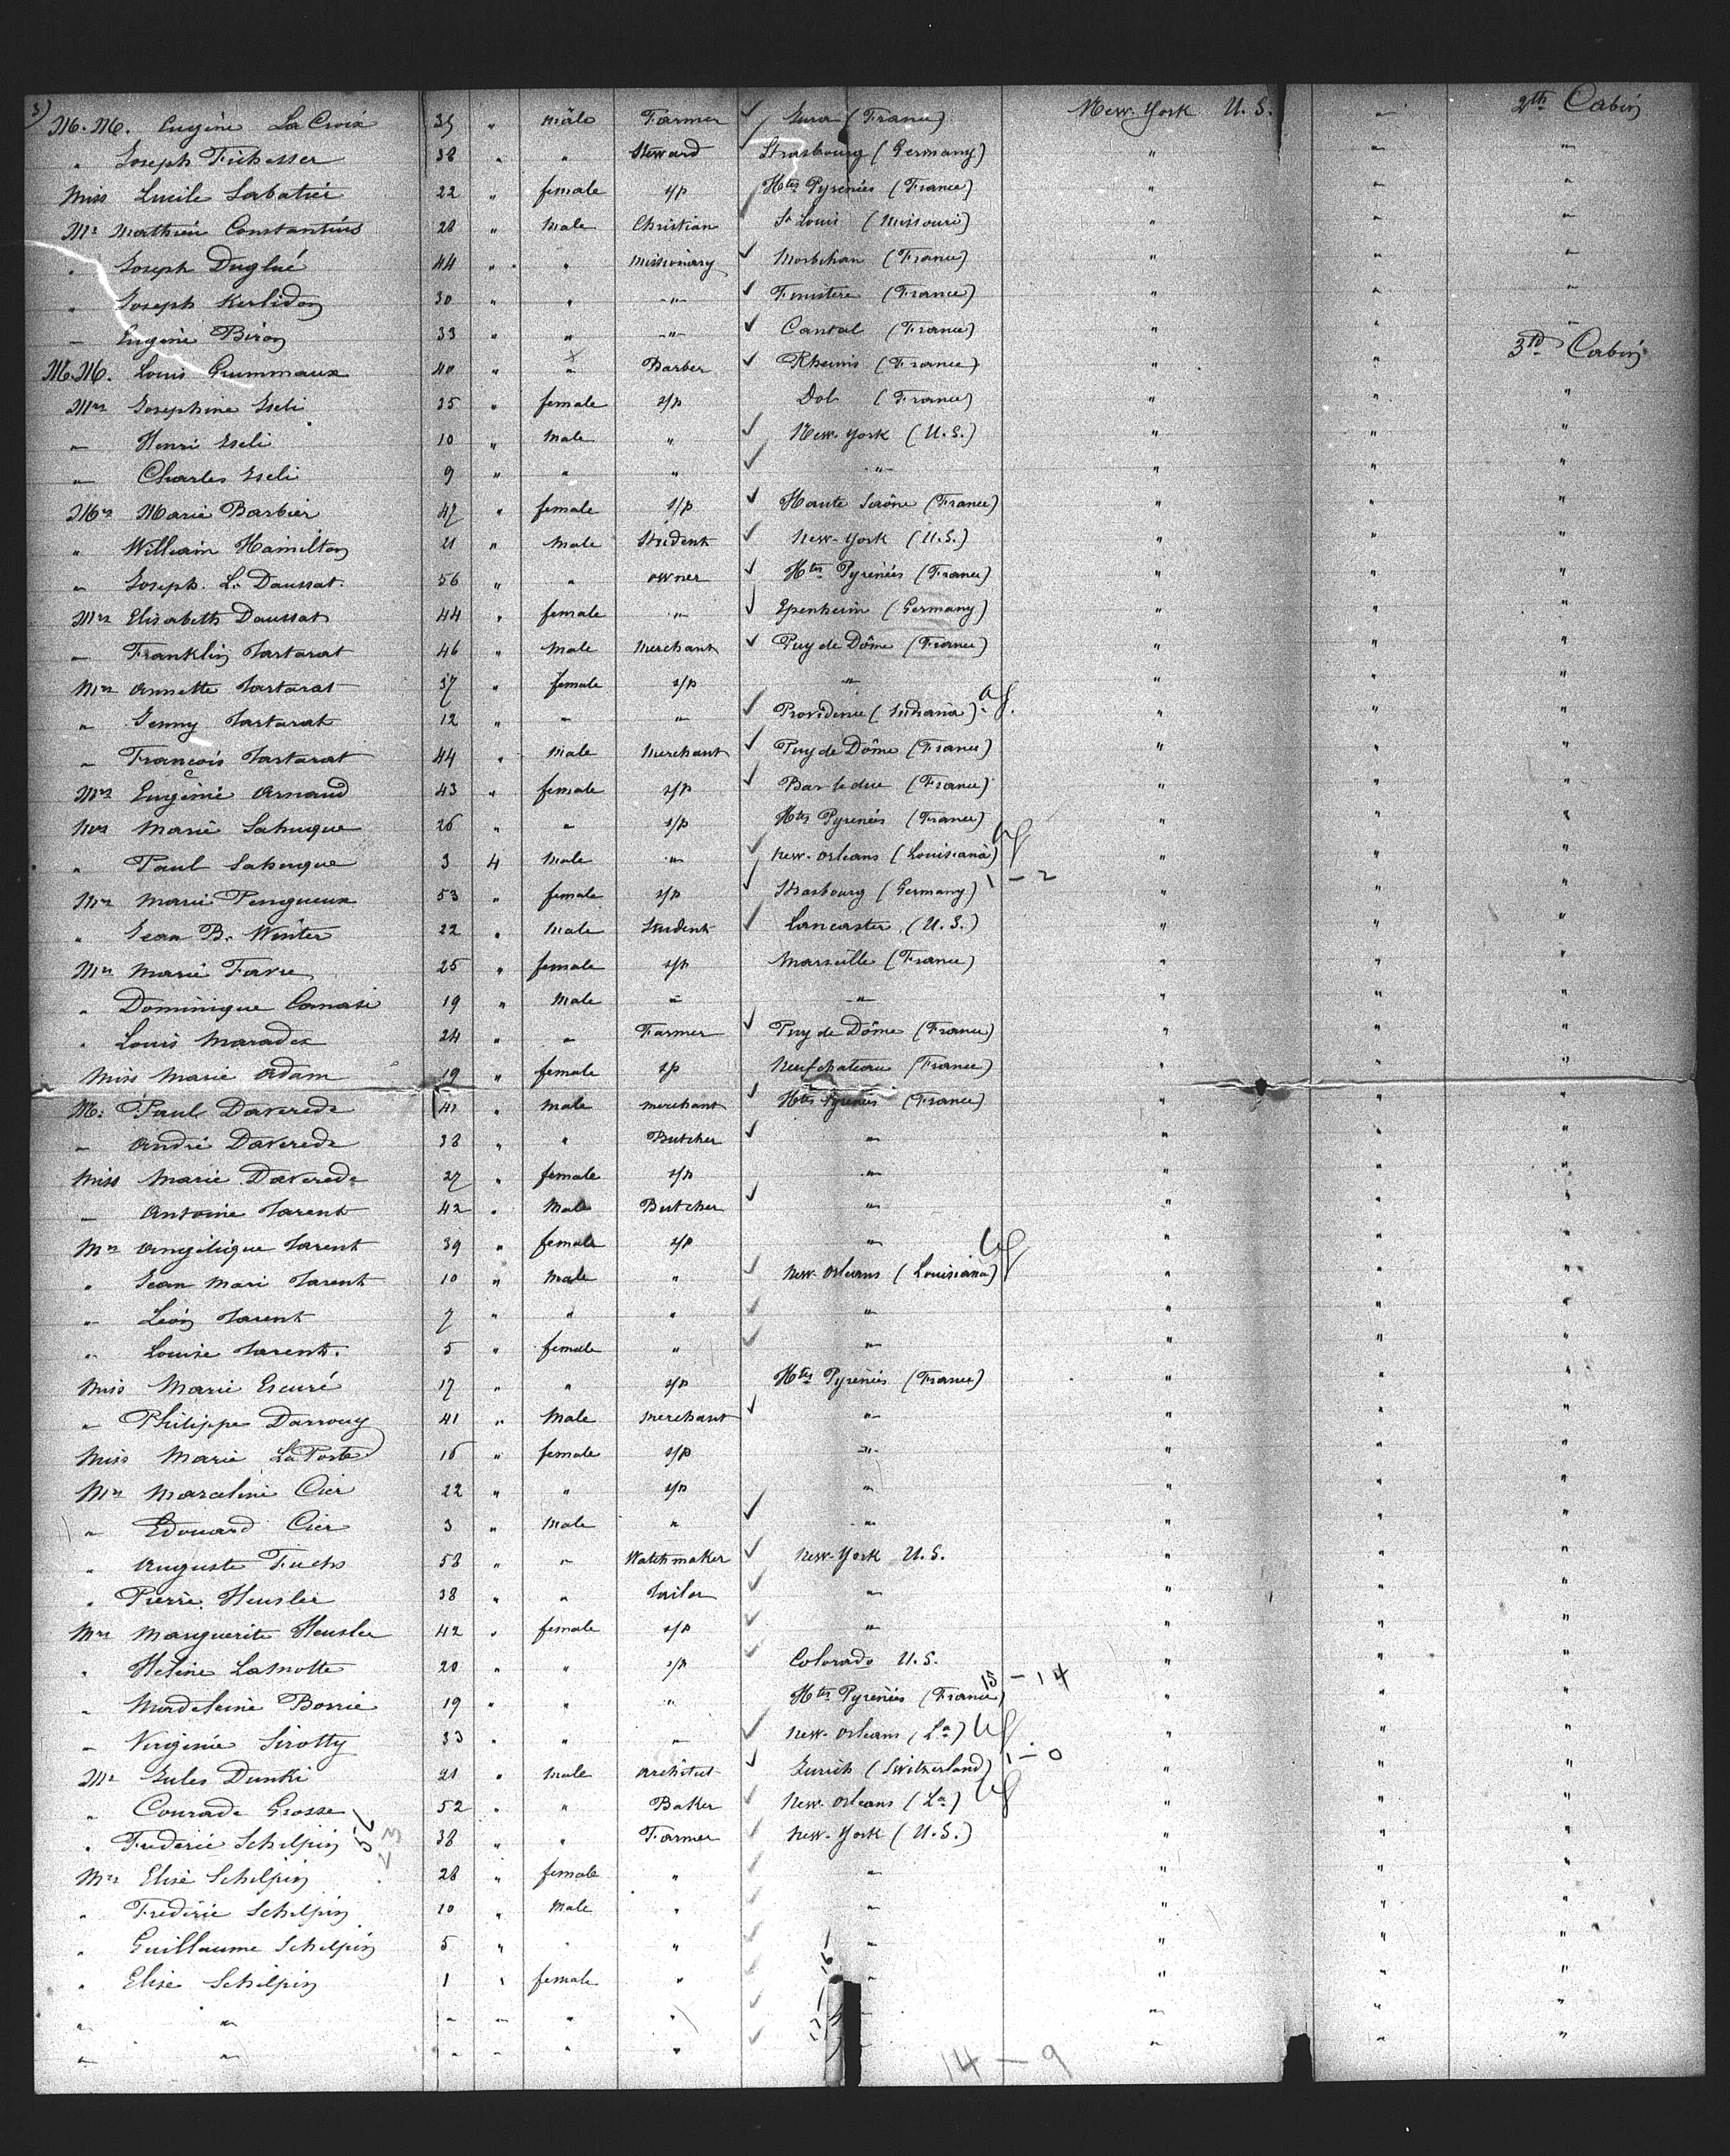 3) M.M. Eugène LaCroix 35 " mâle Farmer ✓ Jura (France) New-York U.S. " 2th Cabin
" Joseph 38 " " Steward Strasbourg (Germany) " " "
Miss Lucile Sabatié 22 " female s/p Htes Pyrénées (France) " " "
Mr Mathieu Constantius 28 " Male Christian St Louis (Missouri) " " "
" Joseph Duglué 44 " " Missionary ✓ Morbihan (France) " " "
" Joseph Kerlidon 30 " " " ✓ Finistère (France) " " "
" Eugène Biron 33 " " " ✓ Cantal (France) " " "
M.M. Louis Grummaux 40 " " Barber ✓ Rheims (France) " " 3rd Cabin
Mrs Josephine Iseli 35 " female s/p Dol (France) " " "
" Henri Iseli 10 " Male " ✓ New-York (U.S.) " " "
" Charles Iseli 9 " " " ✓ " " " "
Mrs Marie Barbier 47 " female s/p ✓ Haute Saône (France) " " "
" William Hamilton 21 " Male Student ✓ New-York (U.S.) " " "
" Joseph. L. Daussat. 56 " " owner ✓ Htes Pyrénées (France) " " "
Mrs Elisabeth Daussat 44 " female " ✓ Epenheim (Germany) " " "
" Franklin Tartarat 46 " Male Merchant ✓ Puy de Dôme (France) " " "
Mrs Annette Tartarat 37 " female s/p " " " "
" Jenny Tartarat 12 " " " ✓ Providence (Indiana) " " "
" François Tartarat 44 " Male Merchant ✓ Puy de Dôme (France) " " "
Mrs Eugénie Arnaud 43 " female s/p ✓ Bar le duc (France) " " "
Mrs Marie Sahuque 26 " " s/p Htes Pyrénées (France) " " "
" Paul Sahuque 3 4 Male " ✓ New-Orleans (Louisiana) " " "
Mrs Marie Perigueux 53 " female s/p ✓ Strasbourg (Germany) 1 - 2 " " "
" Jean B. Winter 22 " Male Student ✓ Lancaster (U.S.) " " "
Mrs Marie Favre 25 " female s/p Marseille (France) " " "
" Dominique Canasi 19 " Male " " " " "
" Louis Maradex 24 " " Farmer ✓ Puy de Dôme (France) " " "
Miss Marie Adam 19 " female s/p Neufchateau (France) " " "
M. Paul Daverede 41 " Male merchant ✓ Htes Pyrénées (France) " " "
" André Daverede 38 " " Butcher ✓ " " " "
Miss Marie Daverede 27 " female s/p " " " "
" Antoine Tarent 42 " Male Butcher ✓ " " " "
Mrs Angélique Tarent 39 " female s/p " " " "
" Jean Mari Tarent 10 " Male " ✓ New-Orleans (Louisiana) " " "
" Léon Tarent 7 " " " ✓ " " " "
" Louise Tarent. 5 " female " ✓ " " " "
Miss Marie Escuré 17 " " s/p Htes Pyrénées (France) " " "
" Philippe Darrouy 41 " Male Merchant ✓ " " " "
Miss Marie LaPorte 16 " female s/p " " " "
Mrs Marceline Cier 22 " " s/p " " " "
" Edouard Cier 3 " Male " ✓ " " " "
" Auguste Fuchs 58 " " Watchmaker ✓ New-York U.S. " " "
" Pierre Heusler 38 " " Tailor ✓ " " " "
Mrs Marguerite Heusler 42 " female s/p ✓ " " " "
" Helène Lamotte 20 " " s/p ✓ Colorado U.S. " " "
" Madeleine Borrie 19 " " " Htes Pyrénées (France) 15 - 14 " " "
" Virginie Sirotty 33 " " " ✓ New-Orleans (La) " " "
Mr Jules Dunki 21 " Male Architect ✓ Zurich (Switzerland) 1 - 0 " " "
" Conrade Grosse 52 " " Baker ✓ New-Orleans (La) " " "
" Frédéric Schilpin 38 " " Farmer ✓ New-York (U.S.) " " "
Mrs Elise Schilpin 28 " female " ✓ " " " "
" Frédéric Schilpin 10 " Male " ✓ " " " "
" Guillaume Schilpin 5 " " " ✓ " " " "
" Elise Schilpin 1 " female " ✓ " " " "
" " " " " " ✓ " " " "
" " " " " " ✓ " " "
14 - 9